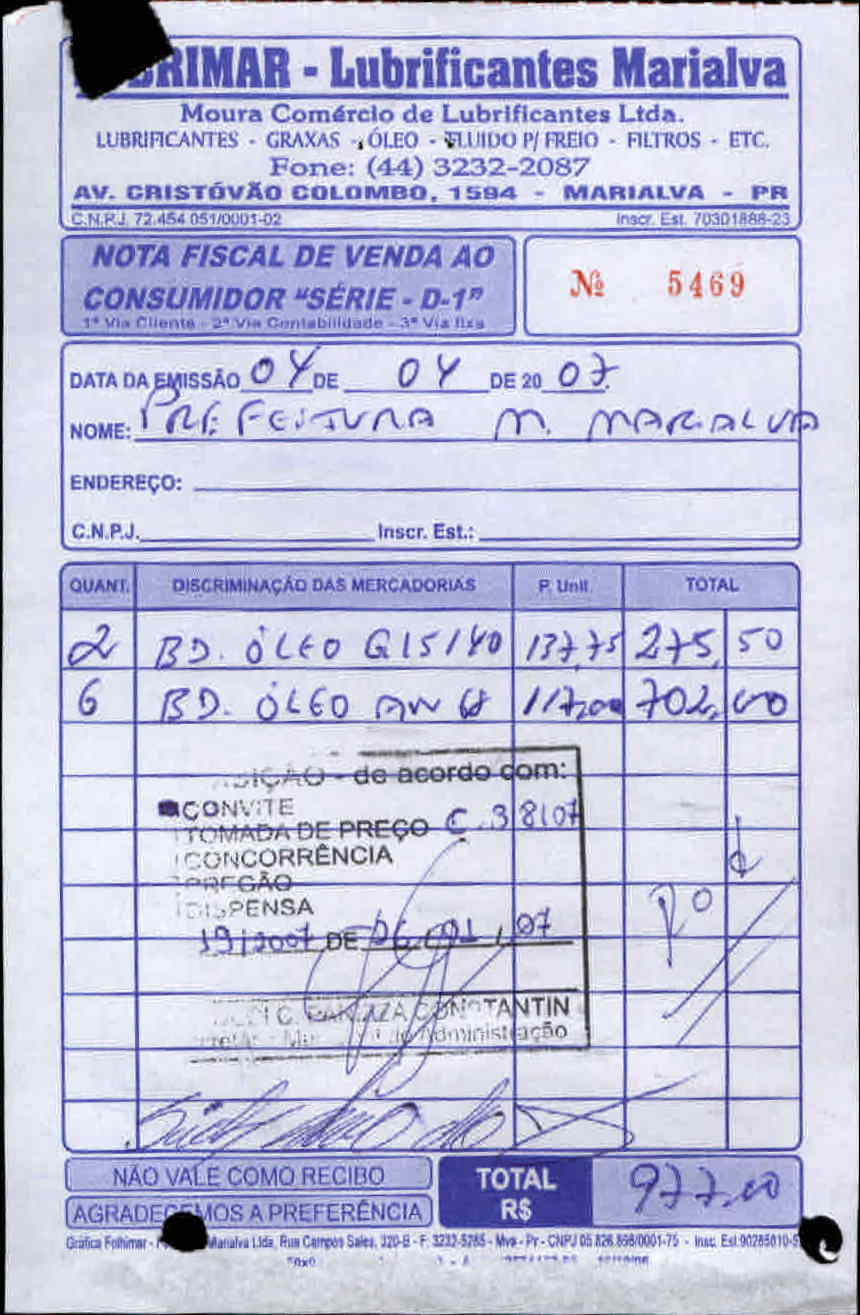 BRIMAR - Lubrificantes Marialva
Moura Comércio de Lubrificantes Ltda.
LUBRIFICANTES - GRAXAS - ÓLEO - FLUIDO P/ FREIO - FILTROS - ETC.
Fone: (44) 3232-2087
AV. CRISTÓVÃO COLOMBO, 1594 - MARIALVA - PR
C.N.P.J. 72.454.051/0001-02 Inscr. Est. 70301888-23
NOTA FISCAL DE VENDA AO
CONSUMIDOR "SÉRIE - D-1"
1ª Via Cliente - 2ª Via Contabilidade - 3ª Via fixa
Nº 5469
DATA DA EMISSÃO 04 DE 04 DE 20 07
NOME: PREFEITURA M. MARIALVA
ENDEREÇO:
C.N.P.J. Inscr. Est.:
QUANT. DISCRIMINAÇÃO DAS MERCADORIAS P. Unit. TOTAL
2 BD. ÓLEO G15/40 137,75 275,50
6 BD. ÓLEO AW 68 117,00 702,00
- de acordo com:
CONVITE
TOMADA DE PREÇO C.38/07
CONCORRÊNCIA
PREGÃO
DISPENSA
19/2007 DE 07
CONSTANTIN
Administração
NÃO VALE COMO RECIBO
AGRADECEMOS A PREFERÊNCIA
TOTAL
R$ 977,00
Gráfica Folhimar - Marialva Ltda, Rua Campos Sales, 320-B - F: 3232-5265 - Mva - Pr - CNPJ 05.826.868/0001-75 - Insc. Est.